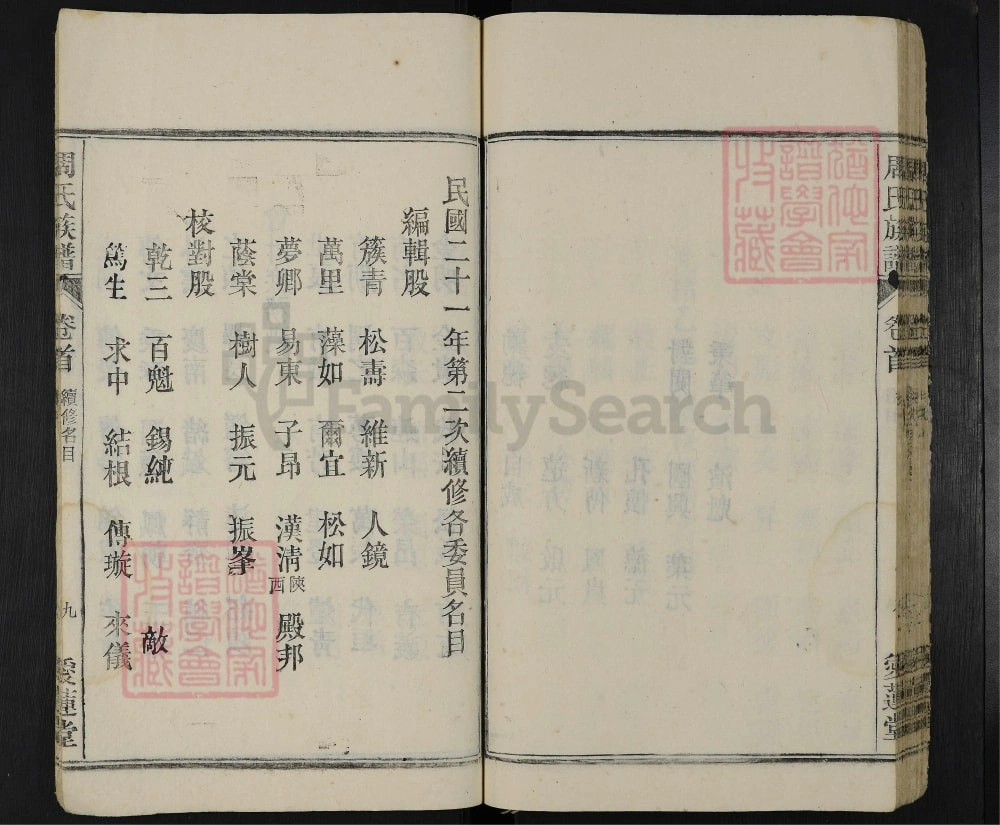 周氏族譜
卷首
愛蓮堂
民國二十一年第二次續修各委員名目
編輯股
簇青 松壽 維新 人鏡
萬里 藻如 爾宜 松如
夢卿 易東 子昂 漢清 陝西 殿邦
蔭棠 樹人 振元 振峯
校對股
乾三 百魁 錫純 敵
篤生 求中 結根 傳璇 來儀
周氏族譜
卷首
續修名目
九
愛蓮堂
FamilySearch
譜學會